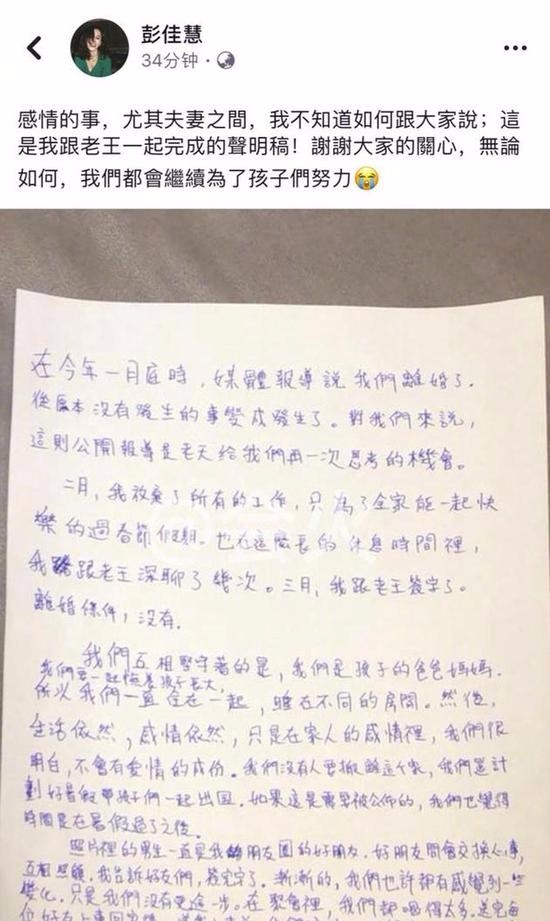 彭佳慧
34分钟·
感情的事，尤其夫妻之間，我不知道如何跟大家說；這
是我跟老王一起完成的聲明稿！謝謝大家的關心，無論
如何，我們都會繼續為了孩子們努力😭
在今年一月底時，媒體報導說我們離婚了．
從原本沒有發生的事變成發生了。對我們來說，
這則公開報導是老天給我們再一次思考的機會。
二月，我放棄了所有的工作，只為了全家能一起快
樂的過春節假期。也在這麼長的休息時間裡，
我跟老王深聊了幾次。三月，我跟老王簽字了。
離婚條件，沒有．
我們互相堅守著的是，我們是孩子的爸爸媽媽．
我們要一起陪著孩子長大，
所以我們一直住在一起，睡在不同的房間。然後，
生活依然，感情依然，只是在家人的感情裡，我們很
明白，不會有愛情的成份。我們沒有人要搬離這個家，我們還計
劃好暑假帶孩子們一起出國．如果這是需要被公佈的，我們也覺得
時間是在暑假過了之後。
照片裡的男生一直是我朋友圈的好朋友．好朋友間會交換心事，
互相照顧．我告訴好友們，簽字了．漸漸的，我們也許都有感覺到一些
變化．只是我們沒有更進一步。在聚會裡，我們都喝得太多，